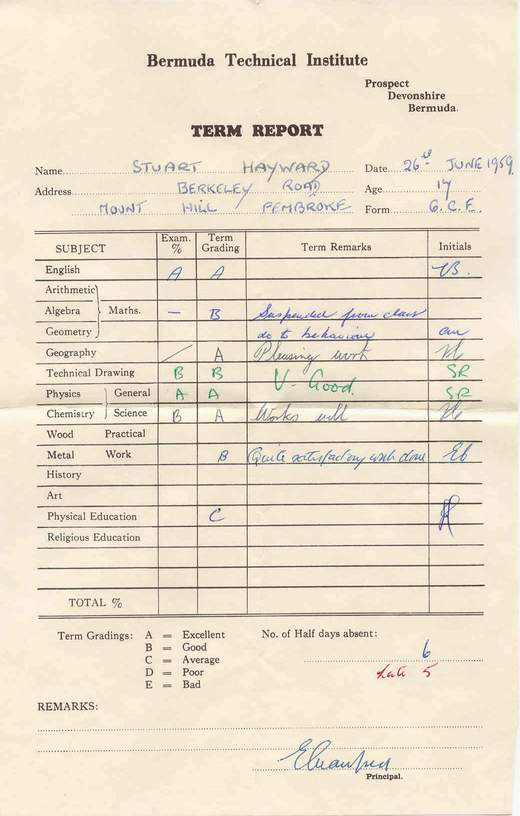 Bermuda Technical Institute
Prospect
Devonshire
Bermuda.
TERM REPORT
Name STUART HAYWARD Date 26th JUNE 1959
Address BERKELEY ROAD Age 17
MOUNT HILL PEMBROKE Form G.C.E.
SUBJECT Exam. % Term Grading Term Remarks Initials
English A A VB.
Arithmetic
Algebra Maths. – B Suspended from class
Geometry do to behaviour
Geography / A Pleasing work
Technical Drawing B B V. Good. SR
Physics General A A SR
Chemistry Science B A Works well
Wood Practical
Metal Work B Quite satisfactory work done Eb
History
Art
Physical Education C
Religious Education
TOTAL %
Term Gradings: A = Excellent No. of Half days absent:
B = Good 6
C = Average
D = Poor Late 5
E = Bad
REMARKS:
Principal.